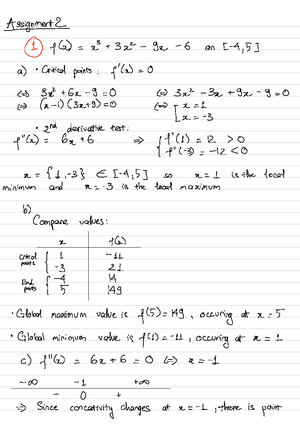 Assignment 2
① f(x) = x³ + 3x² - 9x - 6 on [-4,5]
a) • Critical points: f'(x) = 0
⇔ 3x² + 6x - 9 = 0 ⇔ 3x² - 3x + 9x - 9 = 0
⇔ (x-1)(3x+9) = 0 ⇔ [ x = 1
x = -3
• 2nd derivative test:
f''(x) = 6x + 6 ⇒ { f''(1) = 12 > 0
f''(-3) = -12 < 0
x = {1,-3} ∈ [-4,5] so x = 1 is the local
minimum and x = -3 is the local maximum
b)
Compare values:
x f(x)
Critical points { 1 -11
-3 21
End points { -4 14
5 149
• Global maximum value is f(5) = 149, occuring at x = 5
• Global minimum value is f(1) = -11, occuring at x = 1
c) f''(x) = 6x + 6 = 0 ⇔ x = -1
-∞ -1 +∞
- 0 +
⇒ Since concativity changes at x = -1, there is point